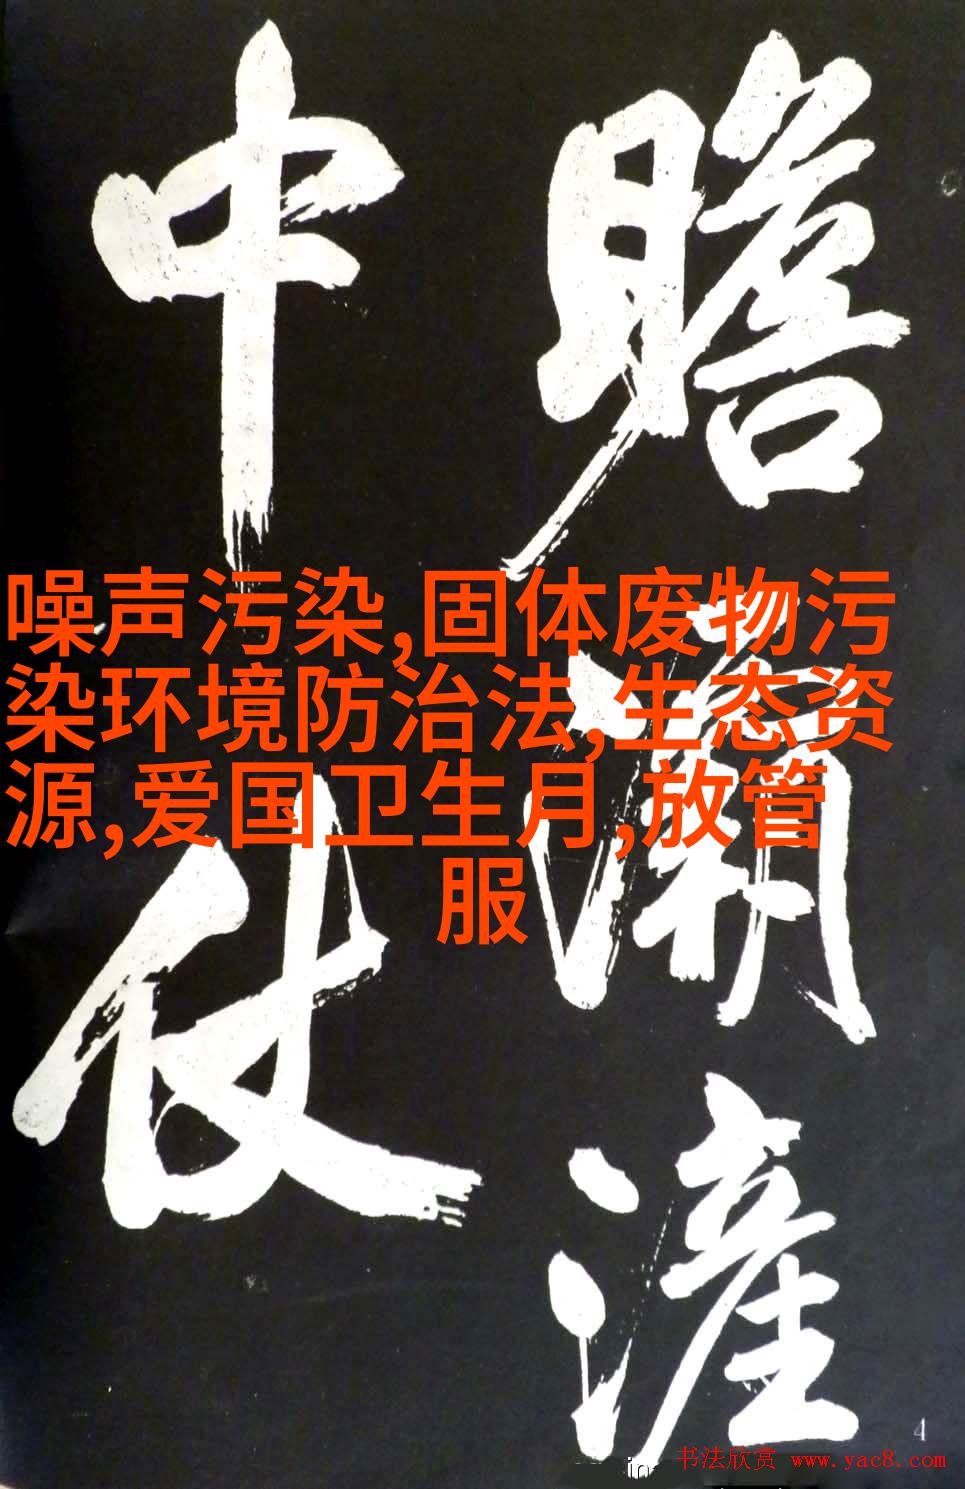 瞻
澭
中
仗
噪声污染,固体废物污
染环境防治法,生态资
源,爱国卫生月,放管
服
4
书法欣赏 www.yac8.com